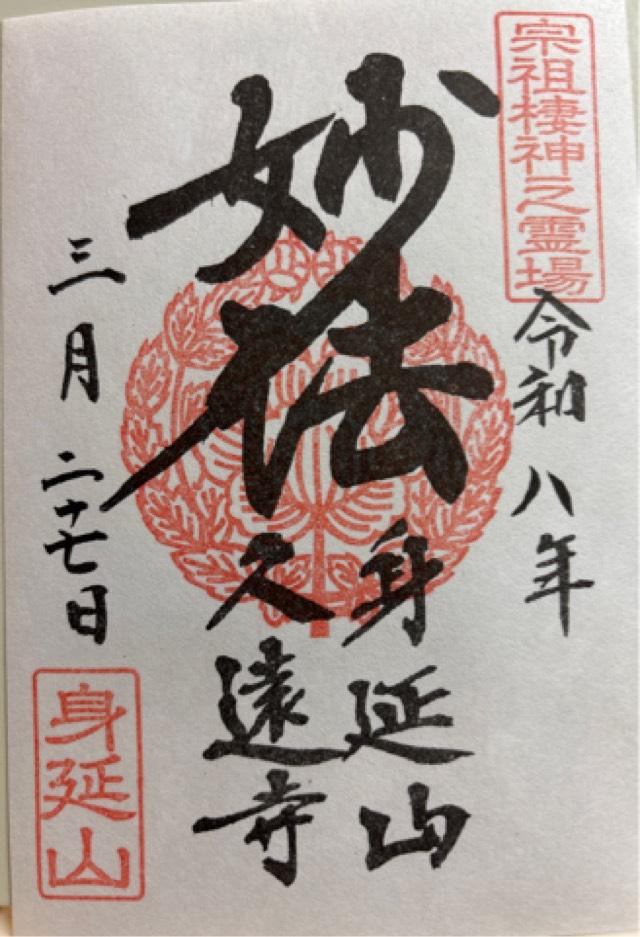 宗祖棲神之霊場
令和八年
妙法
身延山
久遠寺
三月二十七日
身延山